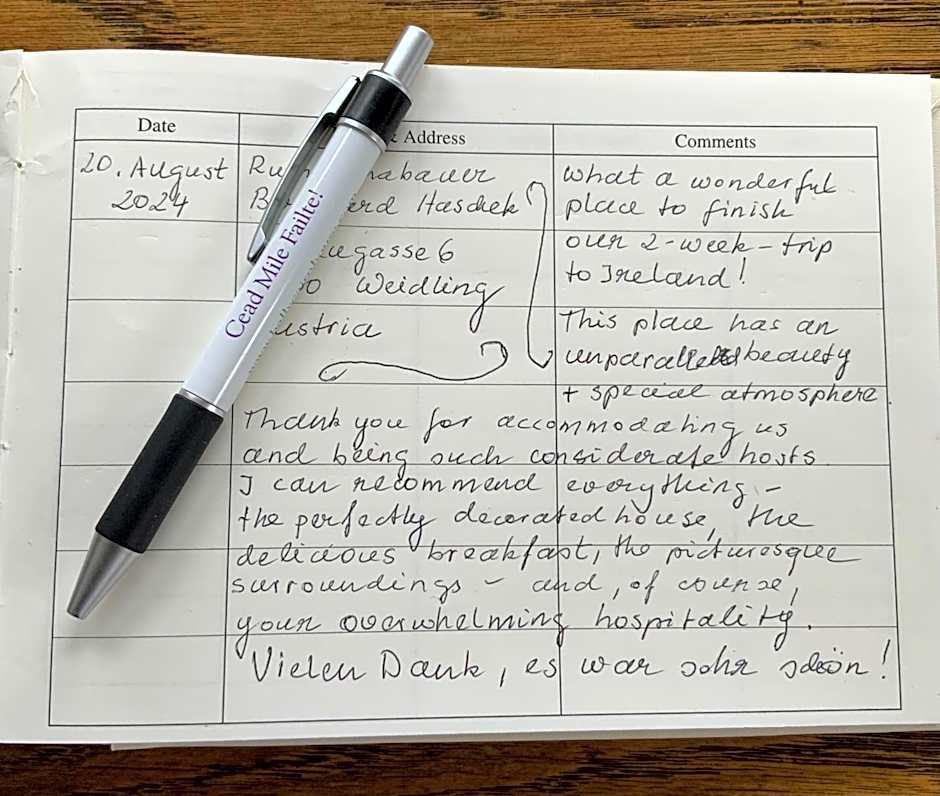 Date & Address Comments
20. August
2024
Haschek
6
Weidling
what a wonderful
place to finish
our 2-week-trip
to Ireland!
This place has an
beauty
+ special atmosphere.
Thank you for accommodating us
and being such considerate hosts.
I can recommend everything –
the perfectly decorated house, the
delicious breakfast, the picturesque
surroundings – and, of course,
your overwhelming hospitality.
Vielen Dank, es war sehr schön!
Cead Mile Failte!